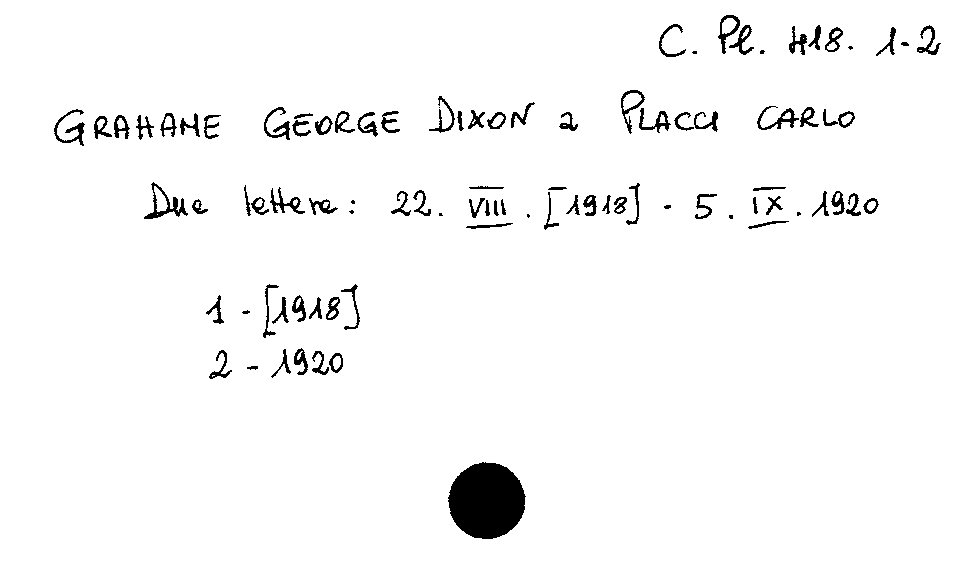 C. Pl. 418. 1-2
GRAHAME GEORGE DIXON a PLACCI CARLO
Due lettere: 22. VIII. [1918] - 5. IX. 1920
1 - [1918]
2 - 1920